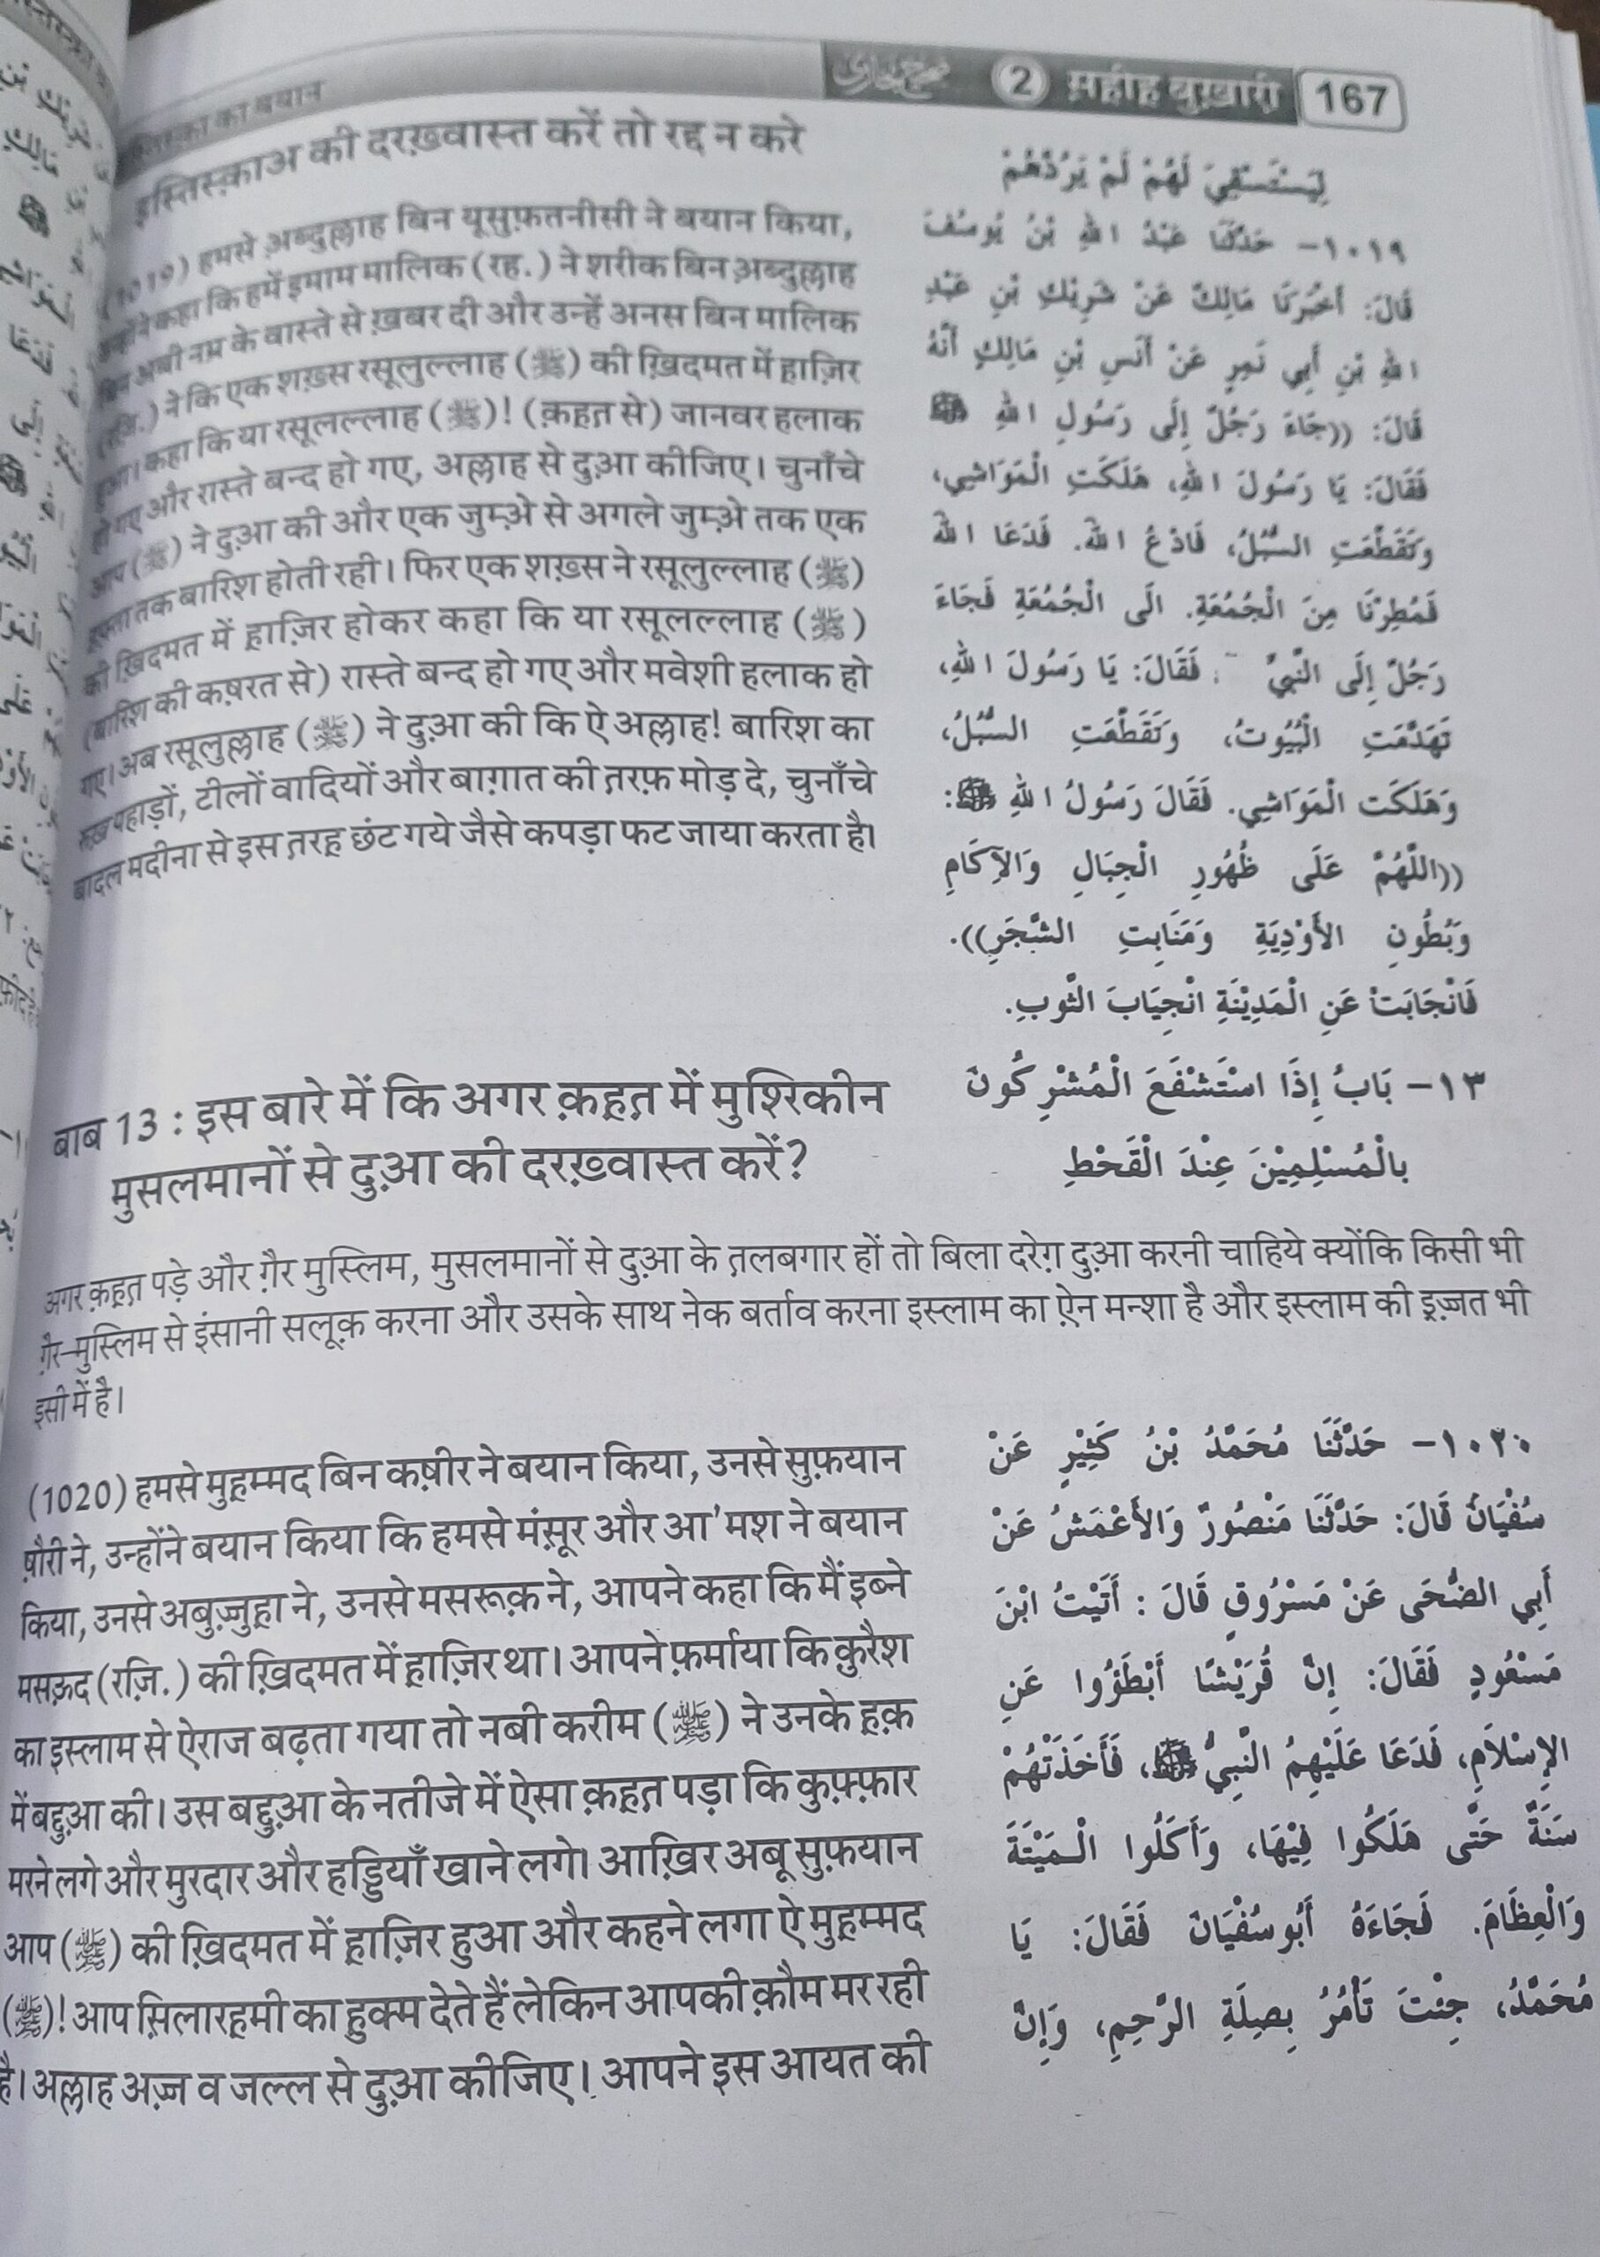 167
सहीह बुख़ारी
2
इस्तिस्क़ाअ की दरख़्वास्त करें तो रद्द न करे
(1019) हमसे अ़ब्दुल्लाह बिन यूसुफ़तनीसी ने बयान किया,
उन्होंने कहा कि हमें इमाम मालिक (रह.) ने शरीक बिन अ़ब्दुल्लाह
बिन अबी नम्र के वास्ते से ख़बर दी और उन्हें अनस बिन मालिक
(रज़ि.) ने कि एक शख़्स रसूलुल्लाह (ﷺ) की ख़िदमत में ह़ाज़िर
हुआ। कहा कि या रसूलल्लाह (ﷺ)! (क़ह़त़ से) जानवर हलाक
हो गए और रास्ते बन्द हो गए, अल्लाह से दुआ़ कीजिए। चुनाँचे
आप (ﷺ) ने दुआ़ की और एक जुम्अ़े से अगले जुम्अ़े तक एक
हफ़्ता तक बारिश होती रही। फिर एक शख़्स ने रसूलुल्लाह (ﷺ)
की ख़िदमत में ह़ाज़िर होकर कहा कि या रसूलल्लाह (ﷺ)
(बारिश की कष़रत से) रास्ते बन्द हो गए और मवेशी हलाक हो
गए। अब रसूलुल्लाह (ﷺ) ने दुआ़ की कि ऐ अल्लाह! बारिश का
रुख़ पहाड़ों, टीलों वादियों और बाग़ात की त़रफ़ मोड़ दे, चुनाँचे
बादल मदीना से इस त़रह़ छंट गये जैसे कपड़ा फट जाया करता है।
لِيَسْتَسْقِيَ لَهُمْ لَمْ يَرُدَّهُمْ
١٠١٩- حَدَّثَنَا عَبْدُ اللهِ بْنُ يُوسُفَ
قَالَ: أَخْبَرَنَا مَالِكٌ عَنْ شَرِيْكِ بْنِ عَبْدِ
اللهِ بْنِ أَبِي نَمِرٍ عَنْ أَنَسِ بْنِ مَالِكٍ أَنَّهُ
قَالَ: ((جَاءَ رَجُلٌ إِلَى رَسُولِ اللهِ ﷺ
فَقَالَ: يَا رَسُولَ اللهِ، هَلَكَتِ الْمَوَاشِي،
وَتَقَطَّعَتِ السُّبُلُ، فَادْعُ اللهَ. فَدَعَا اللهَ
فَمُطِرْنَا مِنَ الْجُمُعَةِ. الَى الْجُمُعَةِ فَجَاءَ
رَجُلٌ إِلَى النَّبِيِّ فَقَالَ: يَا رَسُولَ اللهِ،
تَهَدَّمَتِ الْبُيُوتُ، وَتَقَطَّعَتِ السُّبُلُ،
وَهَلَكَتِ الْمَوَاشِي. فَقَالَ رَسُولُ اللهِ ﷺ:
((اللَّهُمَّ عَلَى ظُهُورِ الْجِبَالِ وَالآكَامِ
وَبُطُونِ الأَوْدِيَةِ وَمَنَابِتِ الشَّجَرِ)).
فَانْجَابَتْ عَنِ الْمَدِيْنَةِ انْجِيَابَ الثَّوبِ.
बाब 13 : इस बारे में कि अगर क़ह़त़ में मुश्रिकीन
मुसलमानों से दुआ़ की दरख़्वास्त करें?
١٣- بَابُ إِذَا اسْتَشْفَعَ الْمُشْرِكُونَ
بِالْمُسْلِمِيْنَ عِنْدَ الْقَحْطِ
अगर क़ह़त़ पड़े और ग़ैर मुस्लिम, मुसलमानों से दुआ़ के त़लबगार हों तो बिला दरेग़ दुआ़ करनी चाहिये क्योंकि किसी भी
ग़ैर-मुस्लिम से इंसानी सलूक़ करना और उसके साथ नेक बर्ताव करना इस्लाम का ऐ़न मन्शा है और इस्लाम की इ़ज़्ज़त भी
इसी में है।
(1020) हमसे मुह़म्मद बिन कष़ीर ने बयान किया, उनसे सुफ़यान
ष़ौरी ने, उन्होंने बयान किया कि हमसे मंस़ूर और आ'मश ने बयान
किया, उनसे अबुज़्ज़ुह़ा ने, उनसे मसरूक़ ने, आपने कहा कि मैं इब्ने
मसऊ़द (रज़ि.) की ख़िदमत में ह़ाज़िर था। आपने फ़र्माया कि क़ुरैश
का इस्लाम से ऐराज बढ़ता गया तो नबी करीम (ﷺ) ने उनके ह़क़
में बद्दुआ़ की। उस बद्दुआ़ के नतीजे में ऐसा क़ह़त़ पड़ा कि कुफ़्फ़ार
मरने लगे और मुरदार और हड्डियाँ खाने लगे। आख़िर अबू सुफ़यान
आप (ﷺ) की ख़िदमत में ह़ाज़िर हुआ और कहने लगा ऐ मुह़म्मद
(ﷺ)! आप स़िलारह़मी का हु़क्म देते हैं लेकिन आपकी क़ौम मर रही
है। अल्लाह अज़्ज व जल्ल से दुआ़ कीजिए। आपने इस आयत की
١٠٢٠- حَدَّثَنَا مُحَمَّدُ بْنُ كَثِيْرٍ عَنْ
سُفْيَانَ قَالَ: حَدَّثَنَا مَنْصُورٌ وَالأَعْمَشُ عَنْ
أَبِي الضُّحَى عَنْ مَسْرُوقٍ قَالَ : أَتَيْتُ ابْنَ
مَسْعُودٍ فَقَالَ: إِنَّ قُرَيْشًا أَبْطَؤُوا عَنِ
الإِسْلاَمِ، فَدَعَا عَلَيْهِمُ النَّبِيُّ ﷺ، فَأَخَذَتْهُمْ
سَنَةٌ حَتَّى هَلَكُوا فِيْهَا، وَأَكَلُوا الْمَيْتَةَ
وَالْعِظَامَ. فَجَاءَهُ أَبُو سُفْيَانَ فَقَالَ: يَا
مُحَمَّدُ، جِئْتَ تَأْمُرُ بِصِلَةِ الرَّحِمِ، وَإِنَّ